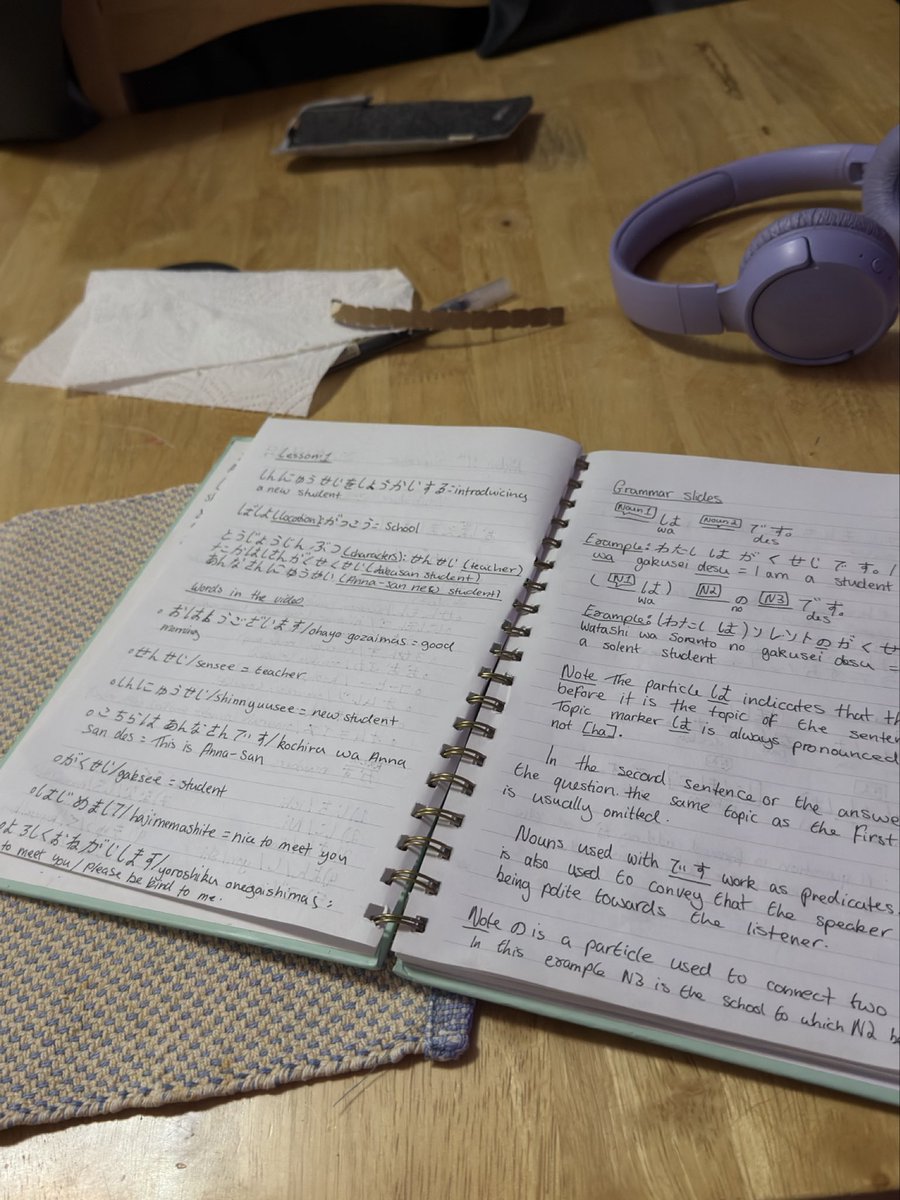 Lesson 1
しんにゅうせじをしょうかじする=introdvicing
a new student
ばしょ(location):がっこう= School
とうじょうじんぶつ(characters): せんせじ(teacher)
たかはしさんがくせじ(
student)
あんなさんにゅうせい(Anna-san new student)
words in the video
おはようございます/ohayo gozaimas = good
morning
せんせじ/sensee = teacher
しんにゅうせじ/shinnyuusee = new student
こちらは あんなさんです/kochira wa Anna
San des = This is Anna-San
がくせじ/gaksee = student
はじめまして/hajimemashite = nice to meet you
よろしくおねがじします/yoroshiku onegaishimas:
to meet you / please be kind to me.
Grammar slides
Noun1 は Noun2 です。
wa des
Example: わたし は がくせじ です。/
wa gakusei desu = I am a student
(N1 は) N2 の N3 です。
wa no des
Example: (わたし は) ソレントのがくせ
Watashi wa Soranto no gakusei desu =
a solent student
Note The particle は indicates that th
before it is the topic of the senten
Topic marker は is always pronounced
not [ha].
In the second sentence or the answe
the question. the same topic as the first
is usually omitted.
Nouns used with です work as predicates.
is also used to convey that the speaker
being polite towards the listener.
Note の is a particle used to connect two
in this example N3 is the school to which N2 be